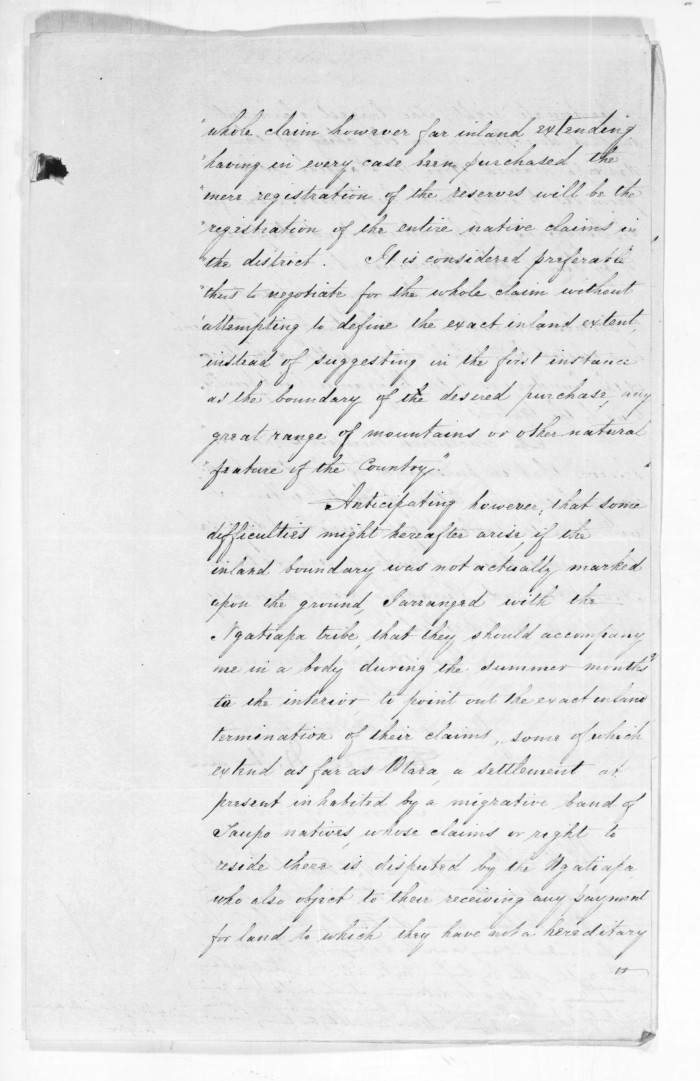 "whole claim however far inland extending
"having in every case been purchased the
"mere registration of the reserves will be the
"registration of the entire native claims in
"the district. It is considered preferable
"thus to negotiate for the whole claim without
"attempting to define the exact inland extent,
"instead of suggesting in the first instance
as the boundary of the desired purchase, any
great range of mountains or other natural
feature of the Country."
Anticipating however, that some
difficulties might hereafter arise if the
inland boundary was not actually marked
upon the ground, I arranged with the
Ngatiapa tribe, that they should accompany
me in a body during the summer months
to the interior to point out the exact inland
termination of their claims, some of which
extend as far as Otara, a settlement at
present inhabited by a migrative band of
Taupo natives, whose claims or right to
reside there is disputed by the Ngatiapa
who also object to their receiving any payment
for land to which they have not a hereditary
or